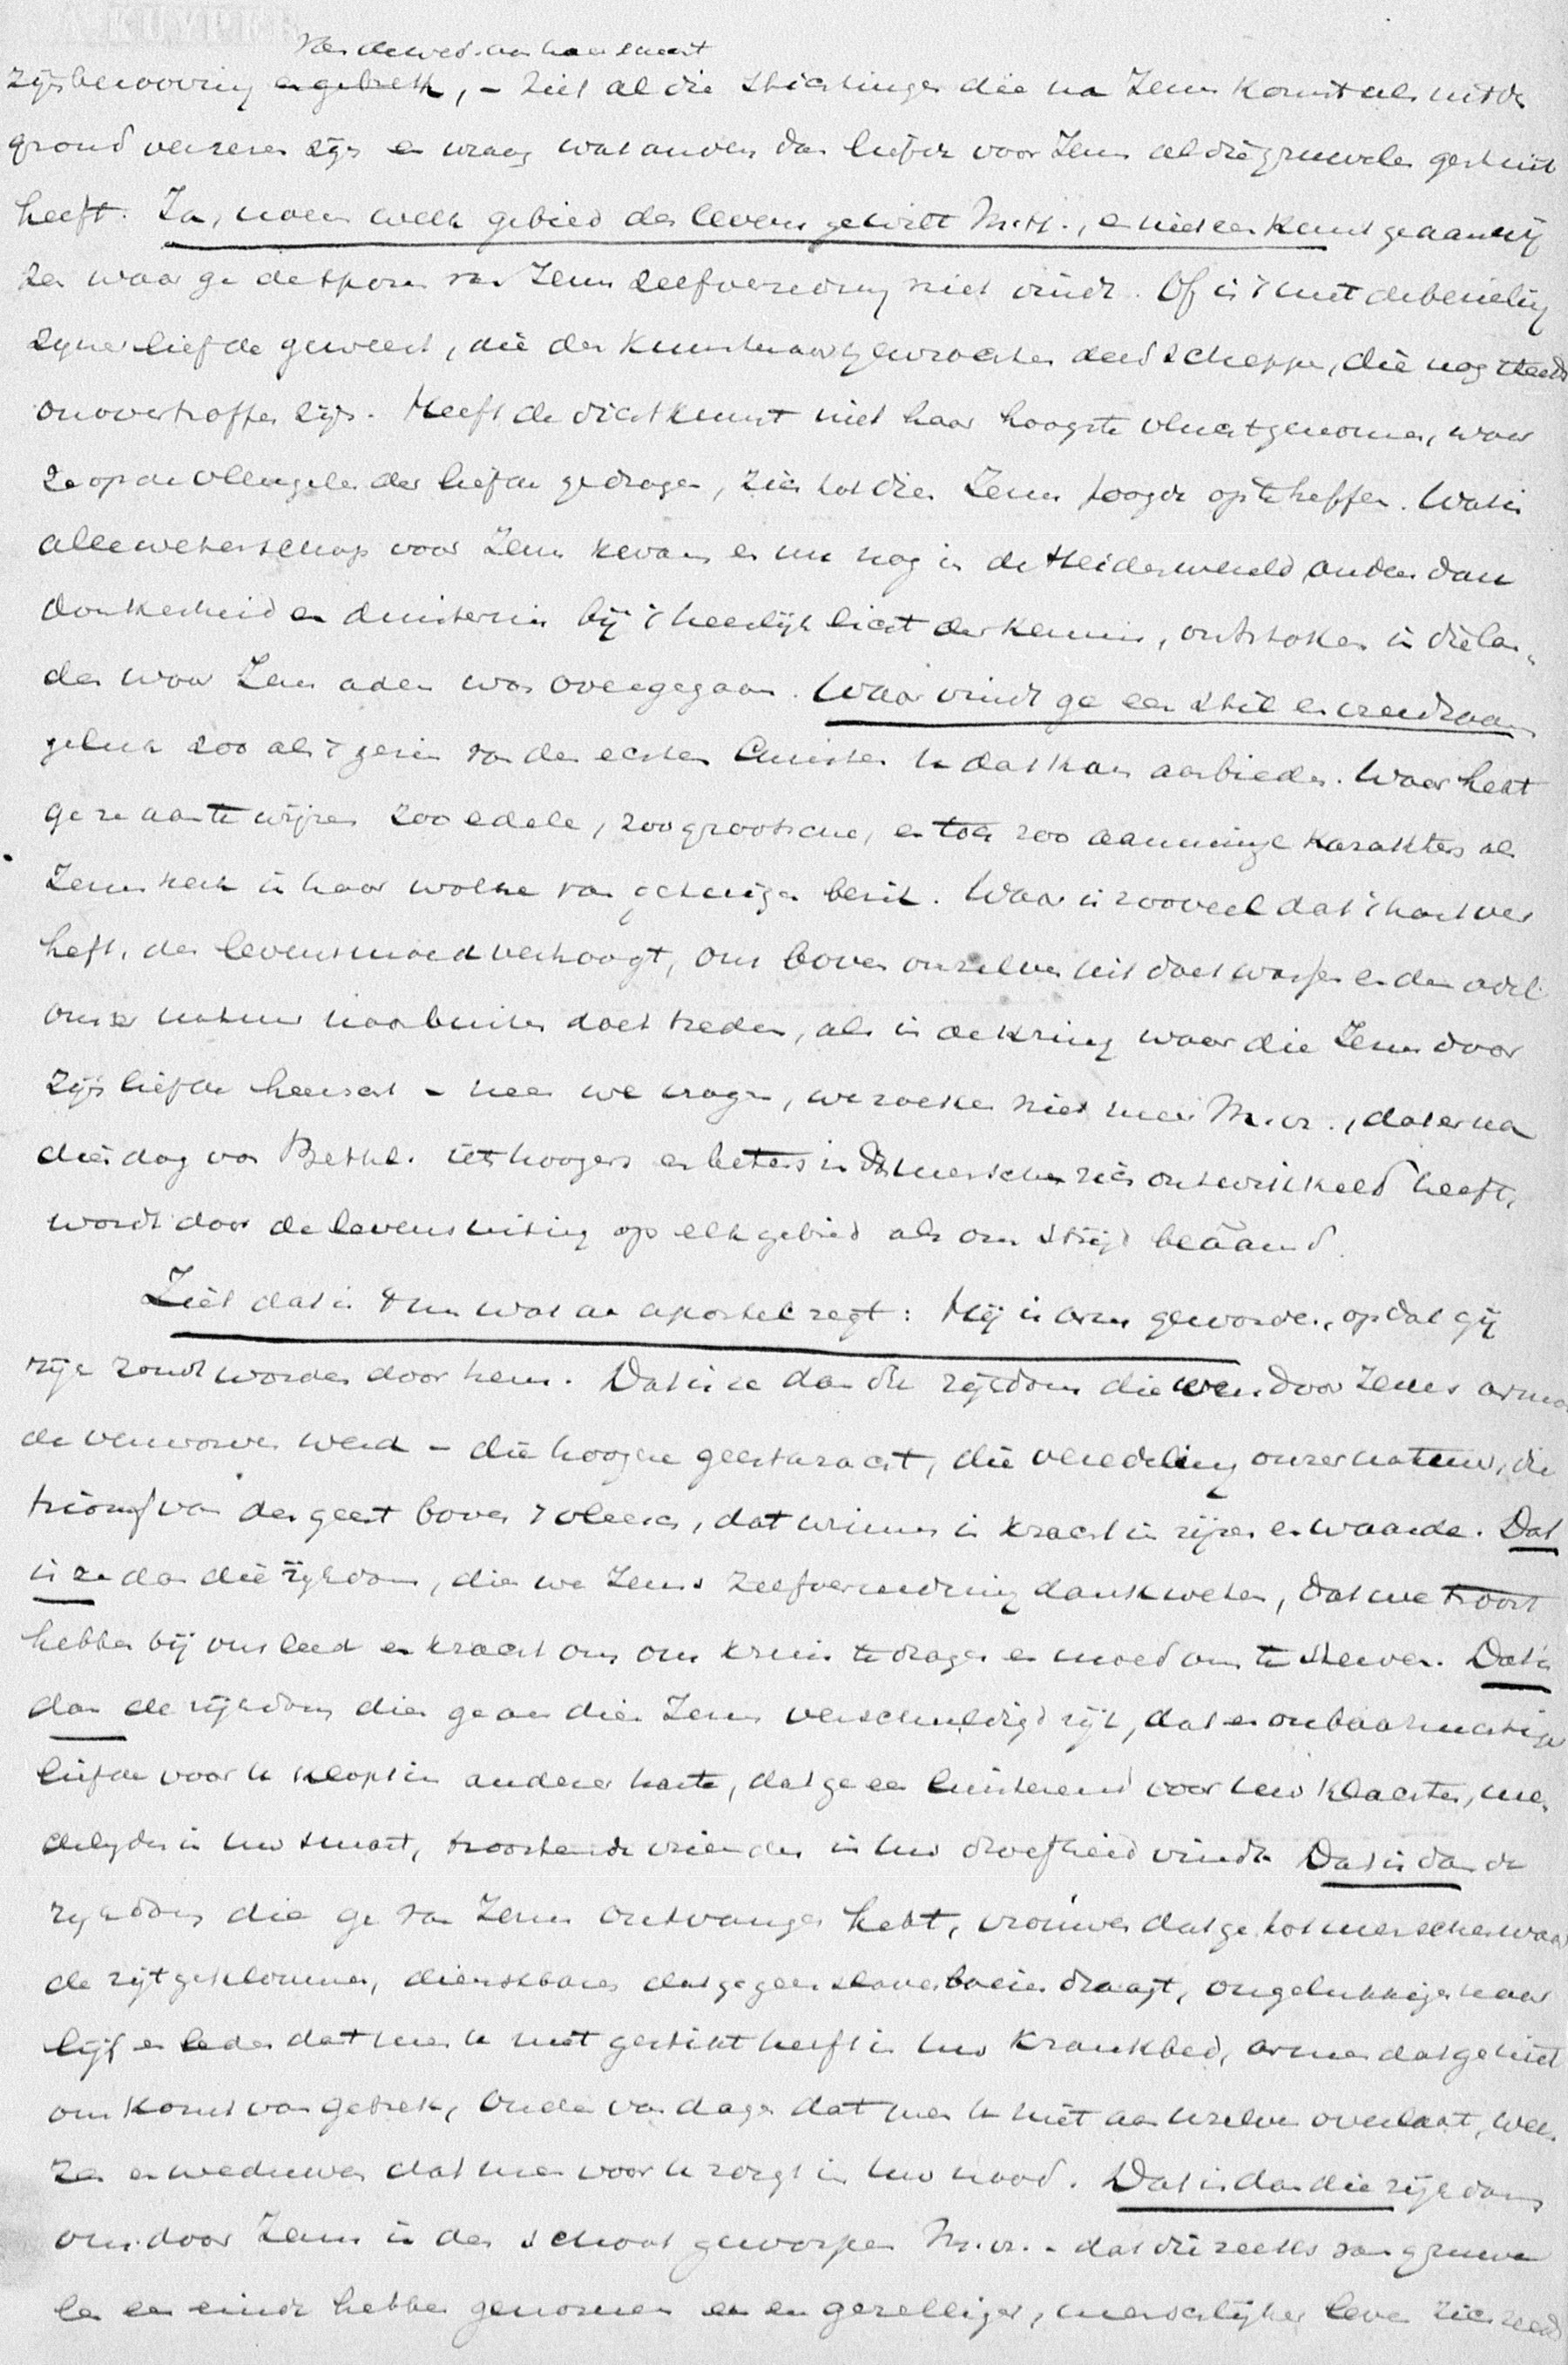 A. KUYPER
van de wed. aan haar smart
zijn berooving en gebrek, – ziet al die stichtingen die na Jezus komst als uit de
grond verrezen zijn en vraag wat anders dan liefde voor Jezus al die gruwelen gestuit
heeft. Ja, noem welk gebied des levens ge wilt M.H., en niet een kunt ge aanwij
zen waar ge de sporen van Jezus zelfvernedring niet vindt. Of is 't niet de bezieling
zijner liefde geweest, die den kunstenaar gewrochten deed scheppen, die nog steeds
onovertroffen zijn. Heeft de dichtkunst niet haar hoogste vlucht genomen, waar
ze op de vleugelen der liefde gedragen, zich tot dien Jezus poogde op te heffen. Wat is
alle wetenschap voor Jezus kwam en nu nog in de Heidenwereld anders dan
donkerheid en duisternis bij 't heerlijk licht der kennis, ontstoken in die lan-
den waar Jezus adem was overgegaan. Waar vindt ge een stil en vreedzaam
geluk zoo als 't gezin van den echten Christen u dat kan aanbieden. Waar hebt
ge ze aan te wijzen zoo edele, zoo grootsche, en toch zoo aanminnige karakters als
Jezus kerk in haar wolke van getuigen bezit. Waar is zooveel dat 't hart ver
heft, den levensmoed verhoogt, ons boven onszelven uit doet wassen en den adel
onzer natuur naar buiten doet treden, als in de kring waar die Jezus door
zijn liefde heerscht – neen we vragen, we zoeken niet meer M.vr., dat er na
dien dag van Bethl. iets hoogers en beters in de menschen zich ontwikkeld heeft,
wordt door de levensuiting op elk gebied als om strijd beäamd.
Ziet dat is nu wat de apostel zegt: Hij is arm geworden, opdat gij
rijk zoudt worden door hem. Dat is ze dan die rijkdom die ons door Jezus armoe
de verworven werd – die hoogere geestkracht, die veredeling onzer natuur, die
triomf van den geest boven 't vleesch, dat winnen in kracht in rijzen en waarde. Dat
is ze dan die rijkdom, die we Jezus zelfvernedring dank weten, dat we troost
hebben bij ons leed en kracht om ons kruis te dragen en moed om te sterven. Dat is
dan de rijkdom dien ge aan dien Jezus verschuldigd zijt, dat er onbaatzuchtige
liefde voor u klopt in anderer harte, dat ge een luisterend oor voor uw klachten, me-
delijden in uw smart, troostende vrienden in uw droefheid vindt. Dat is dan de
rijkdom die ge van Jezus ontvangen hebt, vrouwen dat ge tot menschenwaar
de zijt geklommen, dienstbaren dat ge geen slavenboeien draagt, ongelukkigen naar
lijf en leden dat men u niet gestikt heeft in uw krankbed, armen dat ge niet
omkomt van gebrek, ouden van dagen dat men u niet aan uzelven overlaat, wee-
zen en weduwen dat men voor u zorgt in uw nood. Dat is dan die rijkdom
ons door Jezus in den schoot geworpen M.vr. – dat die reeks van gruwe
len een einde hebben genomen en een gezelliger, menschelijker leven zich reeds